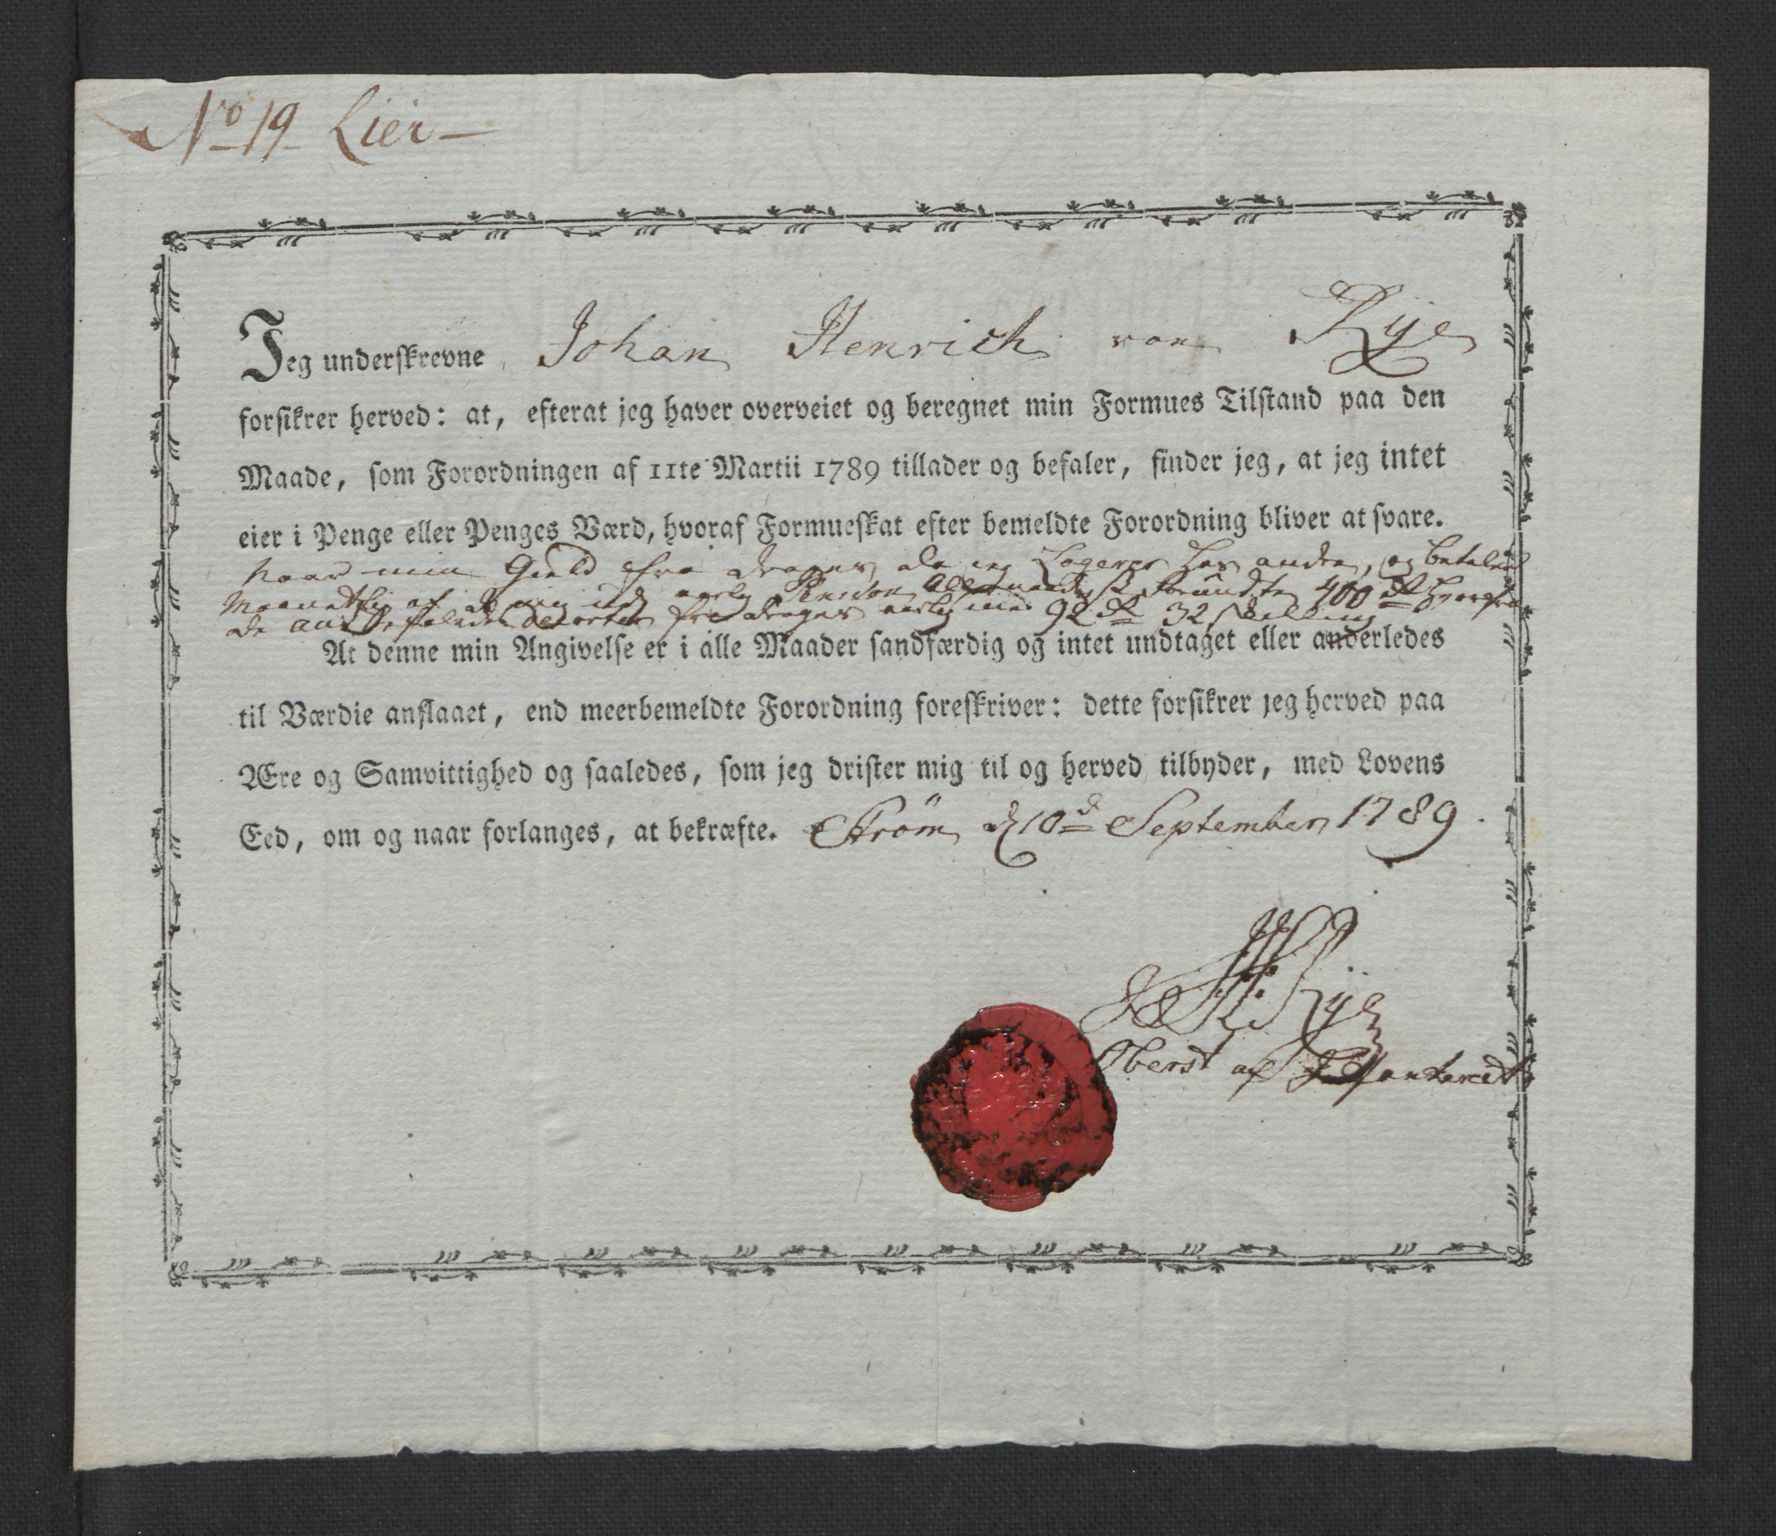 No 19 Lier
Jeg underskrevne Johan Henrich von Rye
forsikrer herved: at, efterat jeg haver overveiet og beregnet min Formues Tilstand paa den
Maade, som Forordningen af 11te Martii 1789 tillader og befaler, finder jeg, at jeg intet
eier i Penge eller Penges Værd, hvoraf Formueskat efter bemeldte Forordning bliver at svare.
naar min Gield fra drages da jeg Logerer hos andre, og betaler
Maanetlig af aarlig Pension 400 d
fra drages aarlig 92 d 32 skilling
At denne min Angivelse er i alle Maader sandfærdig og intet undtaget eller anderledes
til Værdie anslaaet, end meerbemeldte Forordning foreskriver: dette forsikrer jeg herved paa
Ære og Samvittighed og saaledes, som jeg drister mig til og herved tilbyder, med Lovens
Eed, om og naar forlanges, at bekræfte. Strøm d 10d September 1789.
J H V: Rye
Oberst af Infanteriet